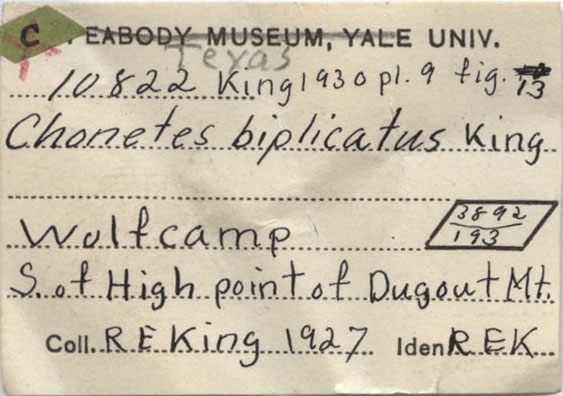 C PEABODY MUSEUM, YALE UNIV.
Texas
10822 King 1930 pl. 9 fig. 13
Chonetes biplicatus King
Wolfcamp
3892
193
S. of High point of Dugout Mt.
Coll. R E King 1927 Iden R E K